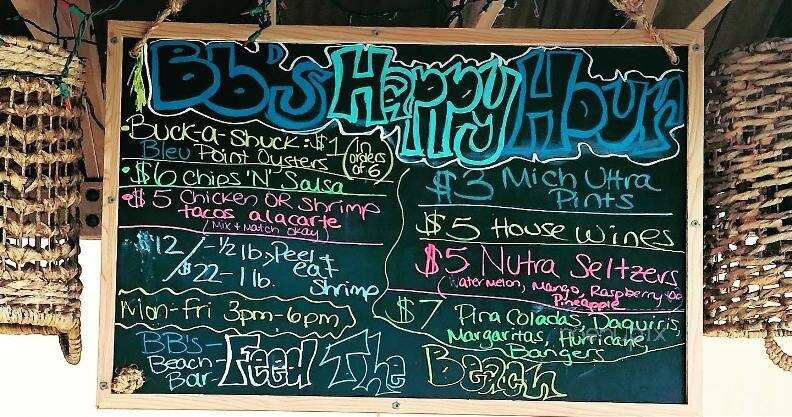 Bb's Happy Hour
Buck-a-Shuck: $1
Bleu Point Oysters
(in orders of 6)
$6 Chips 'N' Salsa
$5 Chicken OR Shrimp
tacos alacarte
(Mix + Match okay)
$12 / - 1/2 lb. Peel +
$22 - 1 lb. eat
Shrimp
Mon-Fri 3pm-6pm
BB's-
Beach-
Bar-
Feed The Beach
$3 Mich Ultra
Pints
$5 House Wines
$5 Nutra Seltzers
(Watermelon, Mango, Raspberry,
Pineapple
$7 Pina Coladas, Daquiris,
Margaritas, Hurricane,
Bangers